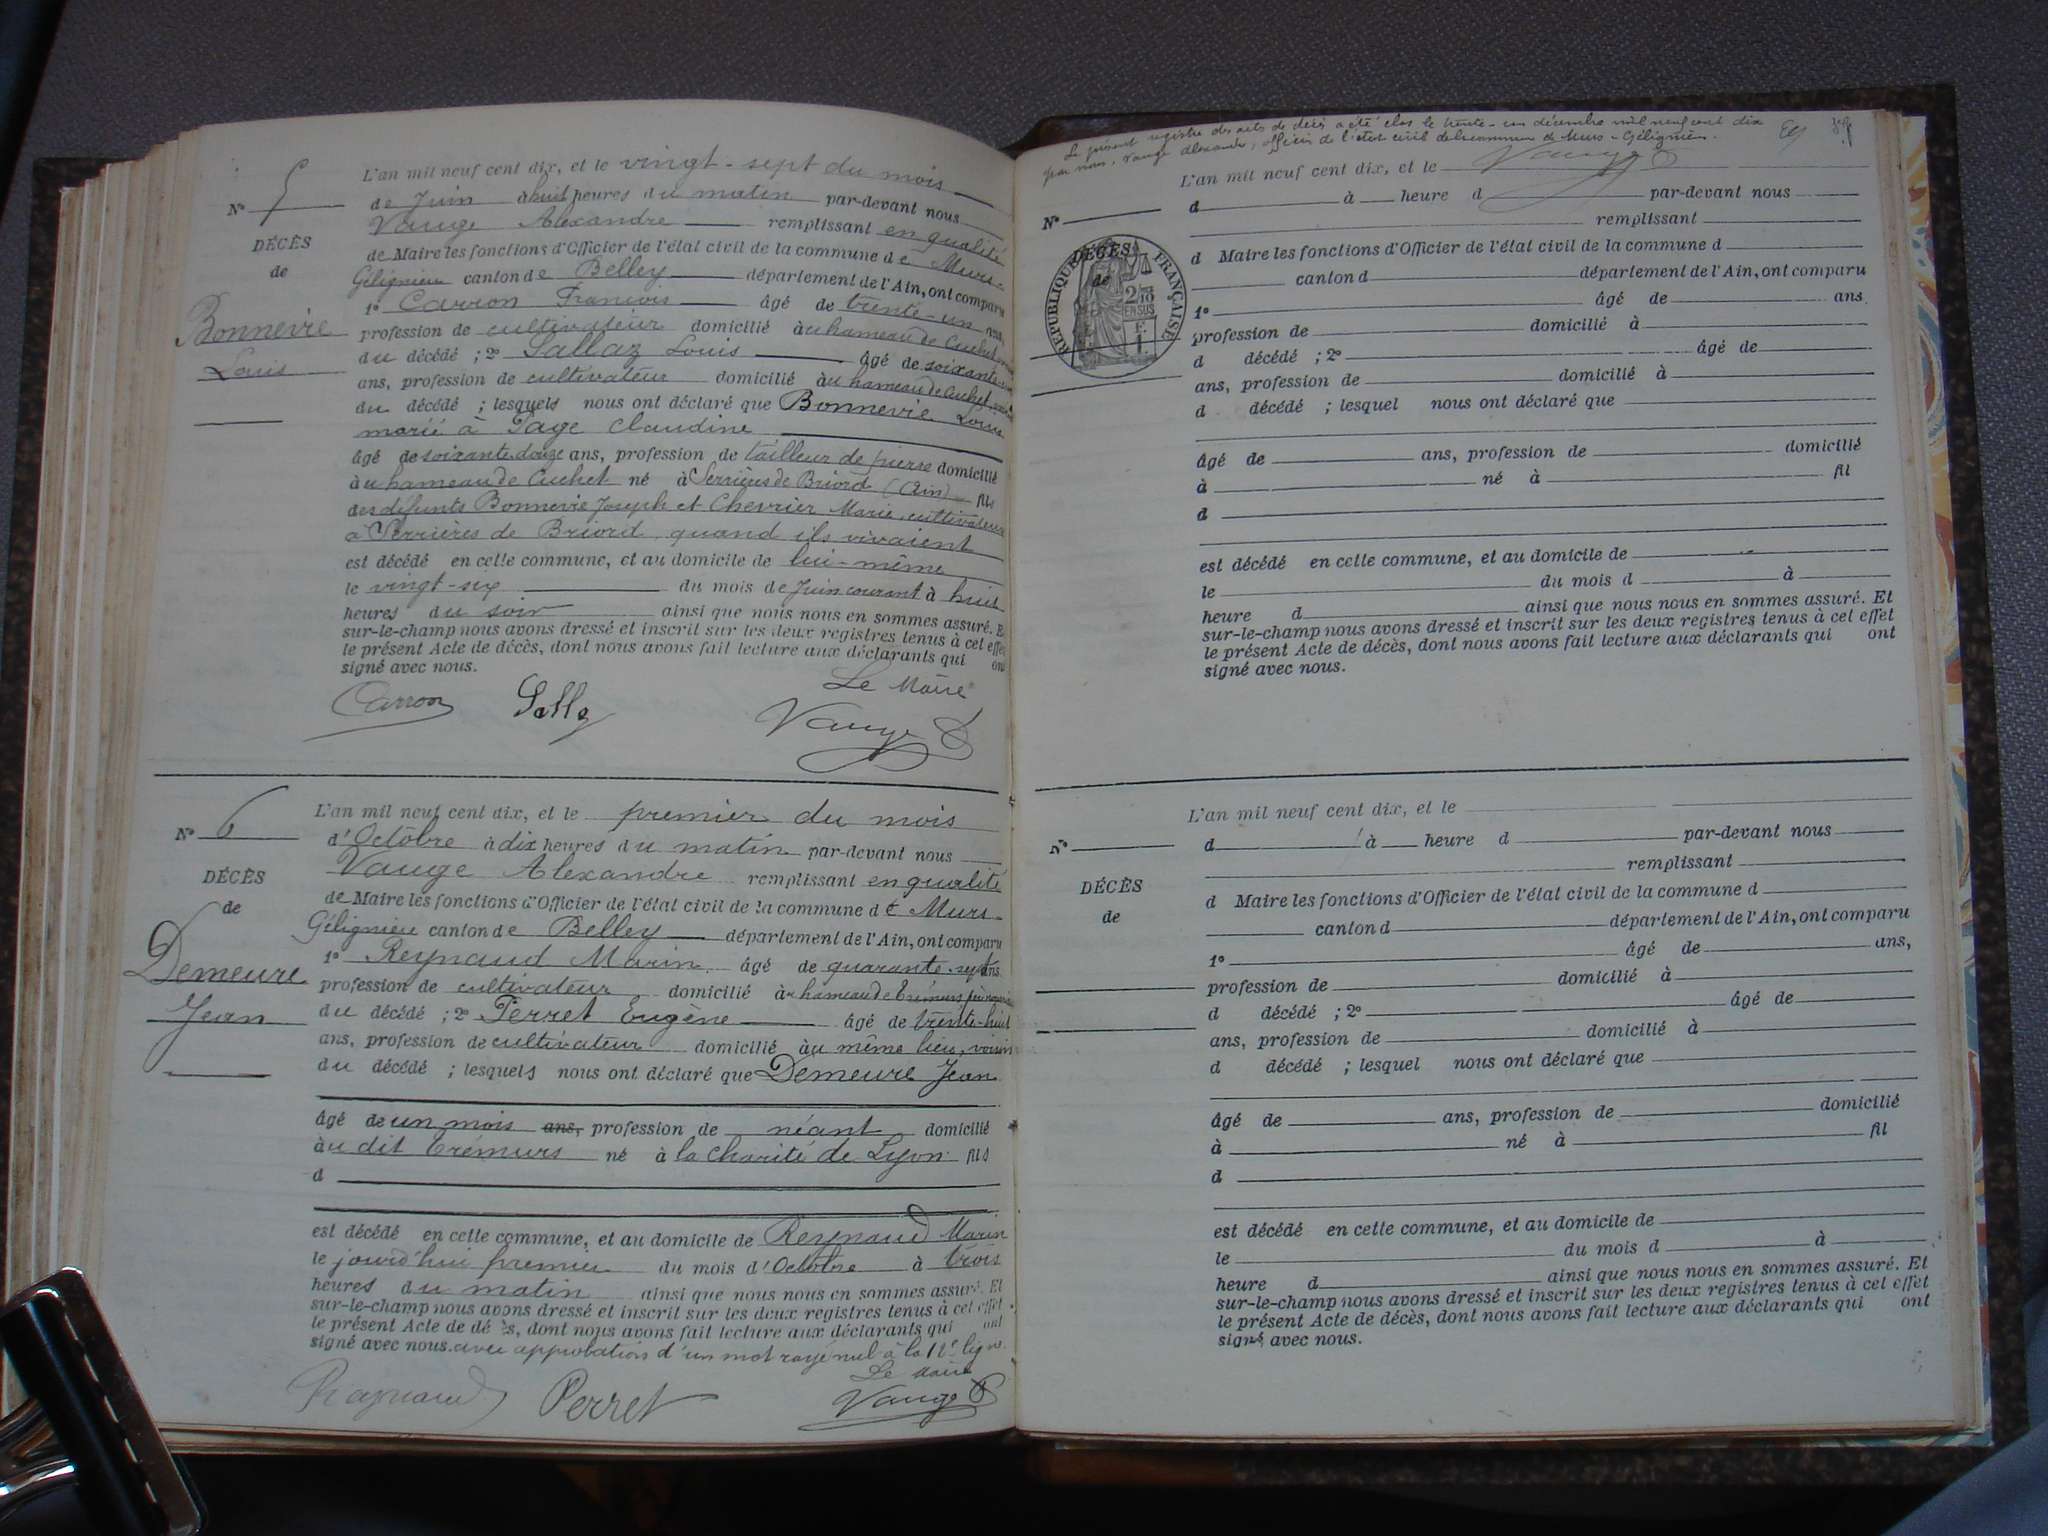 L'an mil neuf cent dix, et le vingt-sept du mois
N° 5
de Juin à huit heures du matin par-devant nous
Vauge Alexandre remplissant en qualité
DÉCÈS
de Maire les fonctions d'Officier de l'état civil de la commune de Murs-
de
Gélignieu canton de Belley département de l'Ain, ont comparu
1° Carron François âgé de trente-un ans,
Bonnevie
profession de cultivateur domicilié à u hameau de Cuchet
du décédé ; 2° Sallaz Louis âgé de soixante
Louis
ans, profession de cultivateur domicilié à u hameau de Cuchet
du décédé ; lesquels nous ont déclaré que Bonnevie Louis
marié à Page Claudine
âgé de soixante douze ans, profession de tailleur de pierre domicilié
à u hameau de Cuchet né à Serrières de Briord (Ain) fils
des défunts Bonnevie Joseph et Chevrier Marie, cultivateurs
à Serrières de Briord quand ils vivaient
est décédé en cette commune, et au domicile de lui-même
le vingt-six du mois de Juin courant à huit
heures du soir ainsi que nous nous en sommes assuré. Et
sur-le-champ nous avons dressé et inscrit sur les deux registres tenus à cet effet
le présent Acte de décès, dont nous avons fait lecture aux déclarants qui ont
signé avec nous.
Le Maire
Carron Salla Vauge
L'an mil neuf cent dix, et le premier du mois
N° 6
d'Octobre à dix heures du matin par-devant nous
Vauge Alexandre remplissant en qualité
DÉCÈS
de Maire les fonctions d'Officier de l'état civil de la commune de Murs-
de
Gélignieu canton de Belley département de l'Ain, ont comparu
1° Reynaud Marin âgé de quarante-sept ans
Demeure
profession de cultivateur domicilié à u hameau de Crémurs père nourricier
Jean
du décédé ; 2° Perret Eugène âgé de trente-huit
ans, profession de cultivateur domicilié à u même lieu, voisin
du décédé ; lesquels nous ont déclaré que Demeure Jean
âgé de un mois ans, profession de néant domicilié
à u dit Crémurs né à la Charité de Lyon fils
d
est décédé en cette commune, et au domicile de Reynaud Marin
le jourd'hui premier du mois d'Octobre à trois
heures du matin ainsi que nous nous en sommes assuré. Et
sur-le-champ nous avons dressé et inscrit sur les deux registres tenus à cet effet
le présent Acte de décès, dont nous avons fait lecture aux déclarants qui ont
signé avec nous. avec approbation d'un mot rayé nul à la 11e ligne
Le Maire
Raynaud Perret Vauge
Le présent registre des actes de décès a été clos le trente-un décembre mil neuf cent dix
par nous, Vauge Alexandre, officier de l'état civil de la commune de Murs-Gélignieu.
Vauge
L'an mil neuf cent dix, et le
d à heure d par-devant nous
N°
remplissant
DÉCÈS
d Maire les fonctions d'Officier de l'état civil de la commune d
de
canton d département de l'Ain, ont comparu
RÉPUBLIQUE FRANÇAISE
2/10
EN SUS
F.
1.
1° âgé de ans
profession de domicilié à
d décédé ; 2° âgé de
ans, profession de domicilié à
d décédé ; lesquel nous ont déclaré que
âgé de ans, profession de domicilié
à né à fil
d
est décédé en cette commune, et au domicile de
le du mois d à
heure d ainsi que nous nous en sommes assuré. Et
sur-le-champ nous avons dressé et inscrit sur les deux registres tenus à cet effet
le présent Acte de décès, dont nous avons fait lecture aux déclarants qui ont
signé avec nous.
L'an mil neuf cent dix, et le
N°
d à heure d par-devant nous
remplissant
DÉCÈS
d Maire les fonctions d'Officier de l'état civil de la commune d
de
canton d département de l'Ain, ont comparu
1° âgé de ans,
profession de domicilié à
d décédé ; 2° âgé de
ans, profession de domicilié à
d décédé ; lesquel nous ont déclaré que
âgé de ans, profession de domicilié
à né à fil
d
est décédé en cette commune, et au domicile de
le du mois d à
heure d ainsi que nous nous en sommes assuré. Et
sur-le-champ nous avons dressé et inscrit sur les deux registres tenus à cet effet
le présent Acte de décès, dont nous avons fait lecture aux déclarants qui ont
signé avec nous.